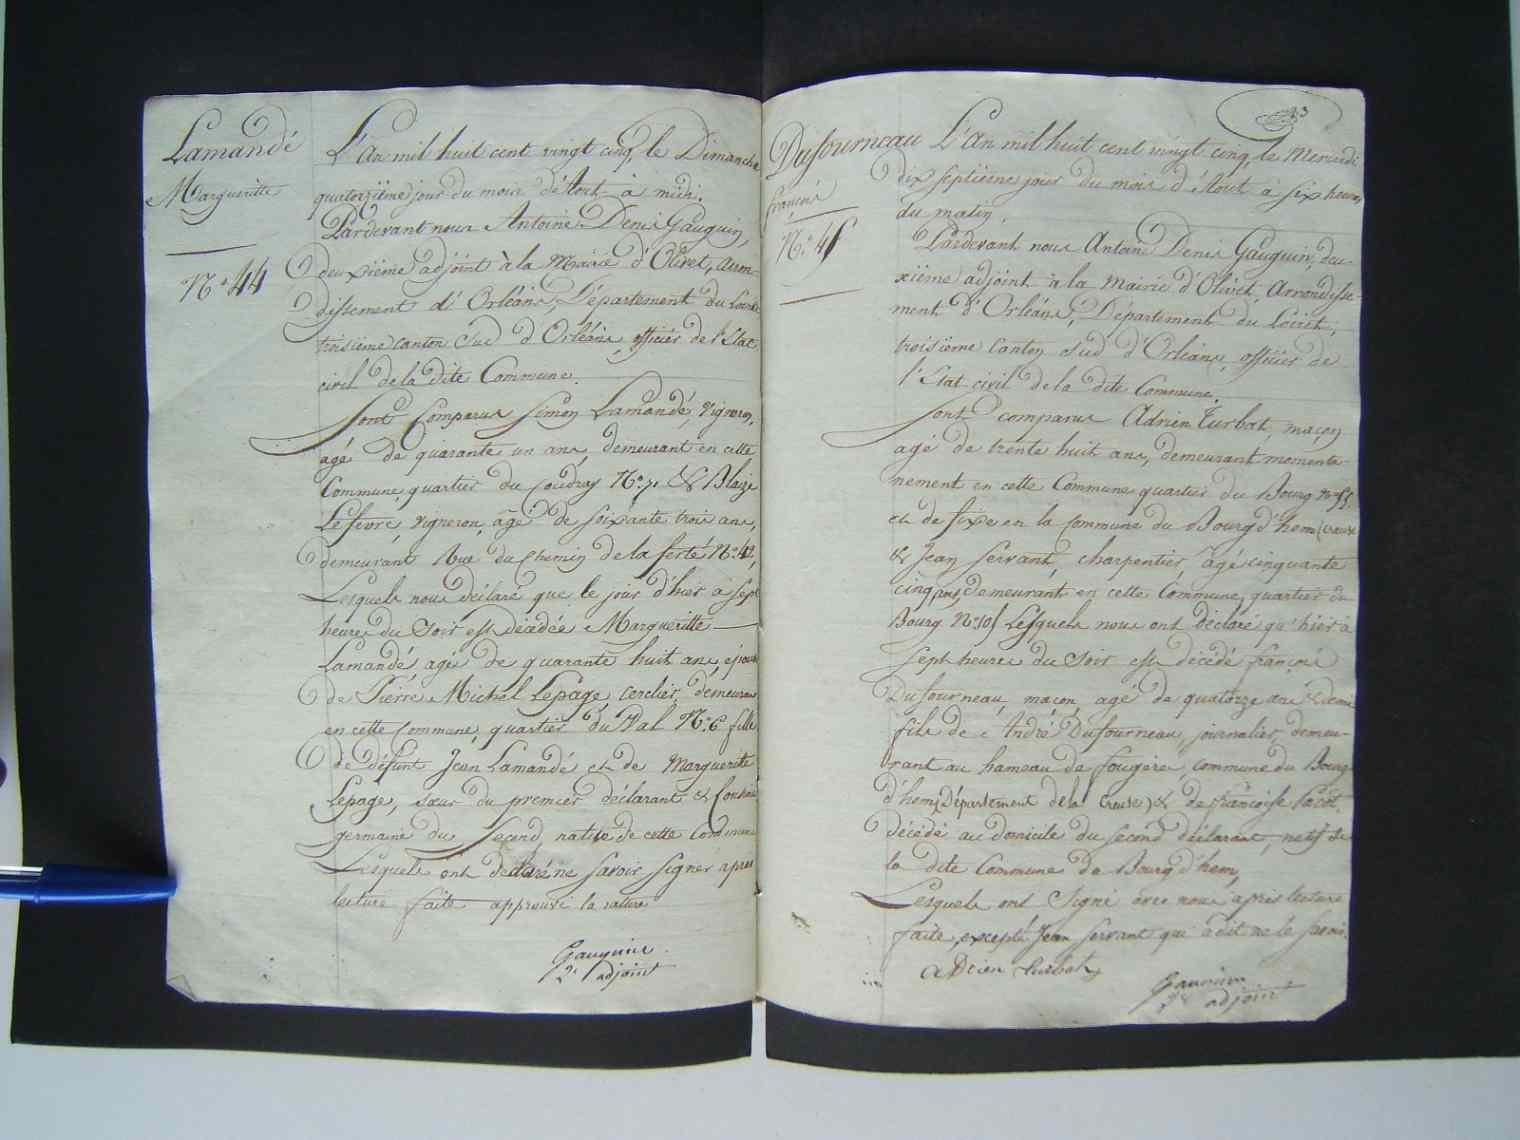 Lamandé
Margueritte
N.° 44
L'An mil huit cent vingt cinq, le Dimanche
quatorzième jour du mois d'Aout à midi.
Pardevant nous Antoine Denis Gauguin,
deuxième adjoint à la Mairie d'Olivet, arron-
dissement d'Orléans, Département du Loiret
troisième canton Sud d'Orléans, officier de l'Etat
civil de la dite Commune.
Sont Comparus Simon Lamandé, Vigneron,
agé de quarante un ans, demeurant en cette
Commune, quartier du Coudray N.° 7. & Blaize
Lefevre, Vigneron, âgé de soixante trois ans,
demeurant Rue du Chemin de la ferté N.° 42,
Lesquels nous déclaré que le jour d'hier à sept
heures du Soir est décédée Margueritte
Lamandé agé de quarante huit ans, epouse
de Pierre Michel Lepage, cerclier, demeurant
en cette Commune, quartier du Val N.° 6 fille
de défunt Jean Lamandé et de Marguerite
Lepage, sœur du premier déclarant & Cousine
germaine du Second, native de cette Commune
Lesquels ont declaré ne savoir signer après
lecture faite approuvé la rature
Gauguin
2.e adjoint
23
Dufourneau
françois
N.° 45
L'An mil huit cent vingt cinq, le Mercredi
dix septième jour du mois d'Aout à six heures
du matin.
Pardevant nous Antoine Denis Gauguin, deu-
xième adjoint à la Mairie d'Olivet, Arrondisse-
ment d'Orléans, Département du Loiret,
troisième Canton sud d'Orléans, officier de
l'Etat civil de la dite Commune.
Sont comparus Adrien Turbat, maçon
agé de trente huit ans, demeurant momenta-
nement en cette Commune quartier du Bourg N.° 55
et de fixe en la Commune du Bourg d'hem (creuse
& Jean Servant, charpentier, agé cinquante
cinq ans demeurant en cette Commune, quartier du
Bourg N.° 105 Lesquels nous ont déclaré qu'hier à
sept heures du Soir est décédé françois
Dufourneau, maçon, agé de quatorze ans & demi
fils de André Dufourneau journalier, demeu-
rant au hameau de fougères, commune du Bourg
d'hem, (Département de la Creuse) & de françoise
Décédé au domicile du second déclarant, natif de
la dite Commune de Bourg d'hem,
Lesquels ont Signé avec nous après lecture
faite, excepté Jean Servant qui a dit ne le savoir.
Adrien turbat
Gauguin
2.e adjoint